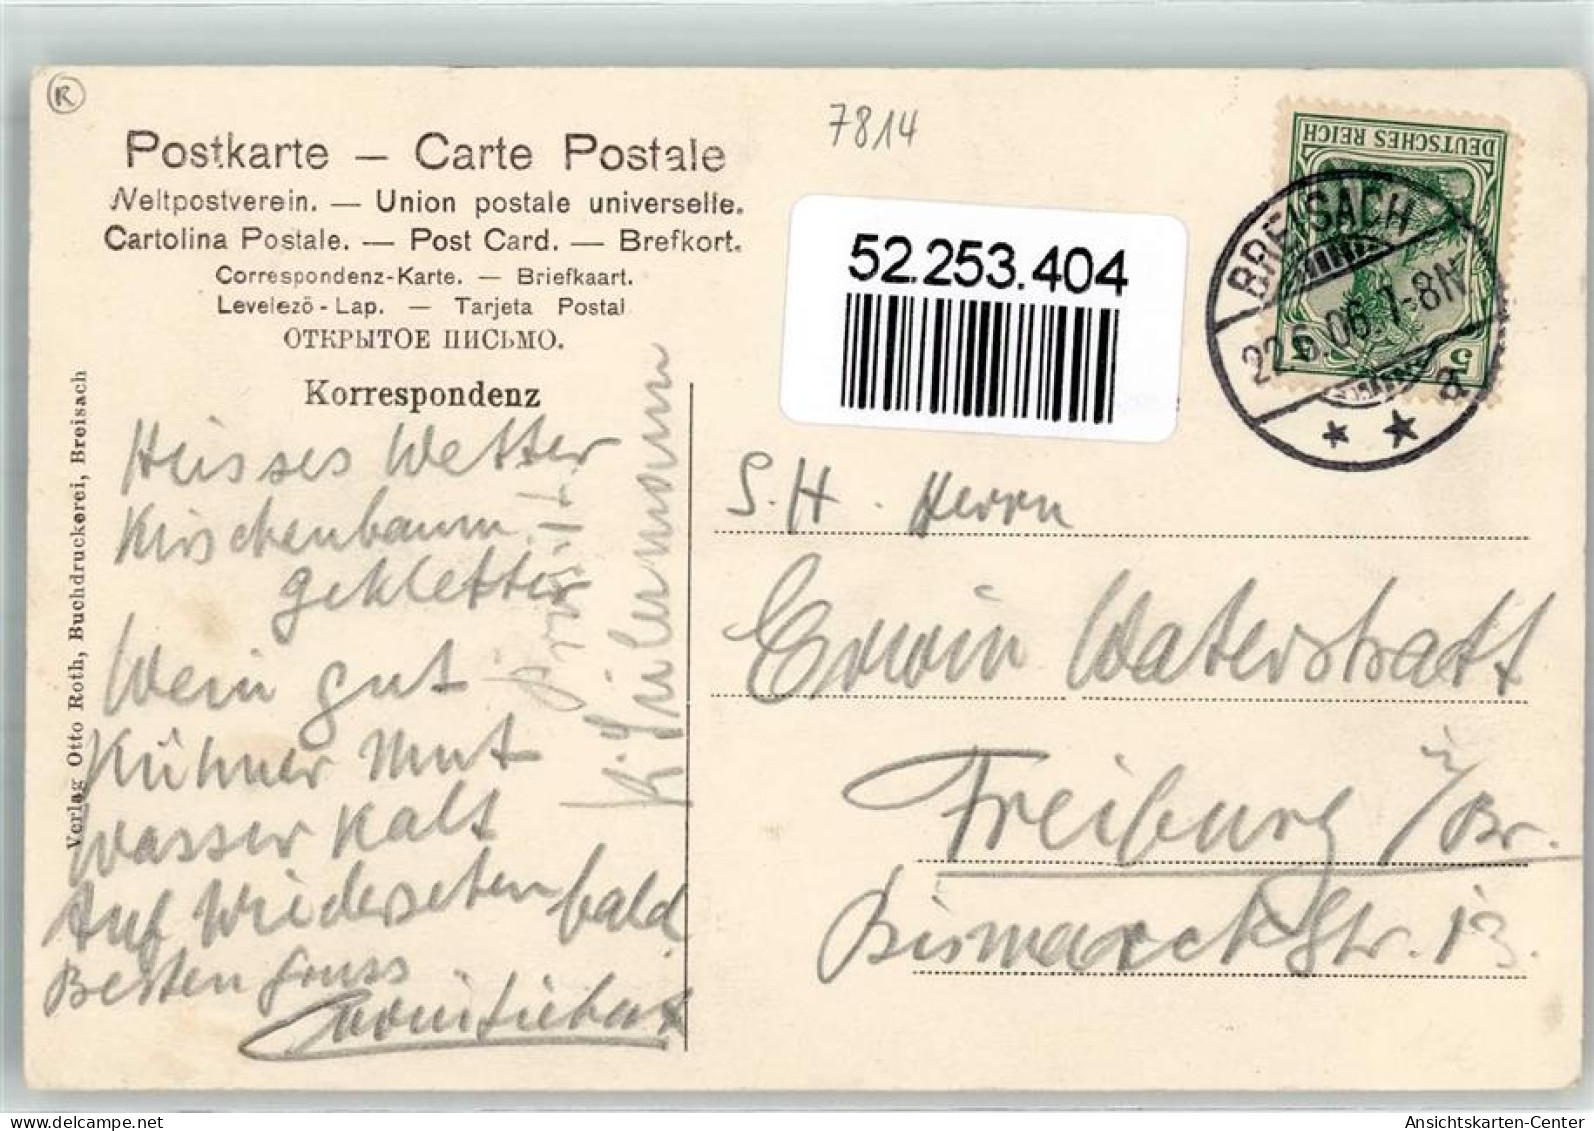 R
Postkarte — Carte Postale
Weltpostverein. — Union postale universelle.
Cartolina Postale. — Post Card. — Brefkort.
Correspondenz-Karte. — Briefkaart.
Levelező-Lap. — Tarjeta Postal
ОТКРЫТОЕ ПИСЬМО.
Korrespondenz
7814
52.253.404
DEUTSCHES REICH
5 5
BREISACH
22.6.06.7-8N
* * a
Verlag Otto Roth, Buchdruckerei, Breisach
Heisses Wetter
Kirschenbaum
geklettert
Wein gut
Kühner Mut
Wasser kalt
Auf Wiedersehen bald
Besten Gruss
prosit
S. H. Herrn
Erwin Waterstratt
Freiburg i/Br.
Bismarckstr. 13.
Ansichtskarten-Center